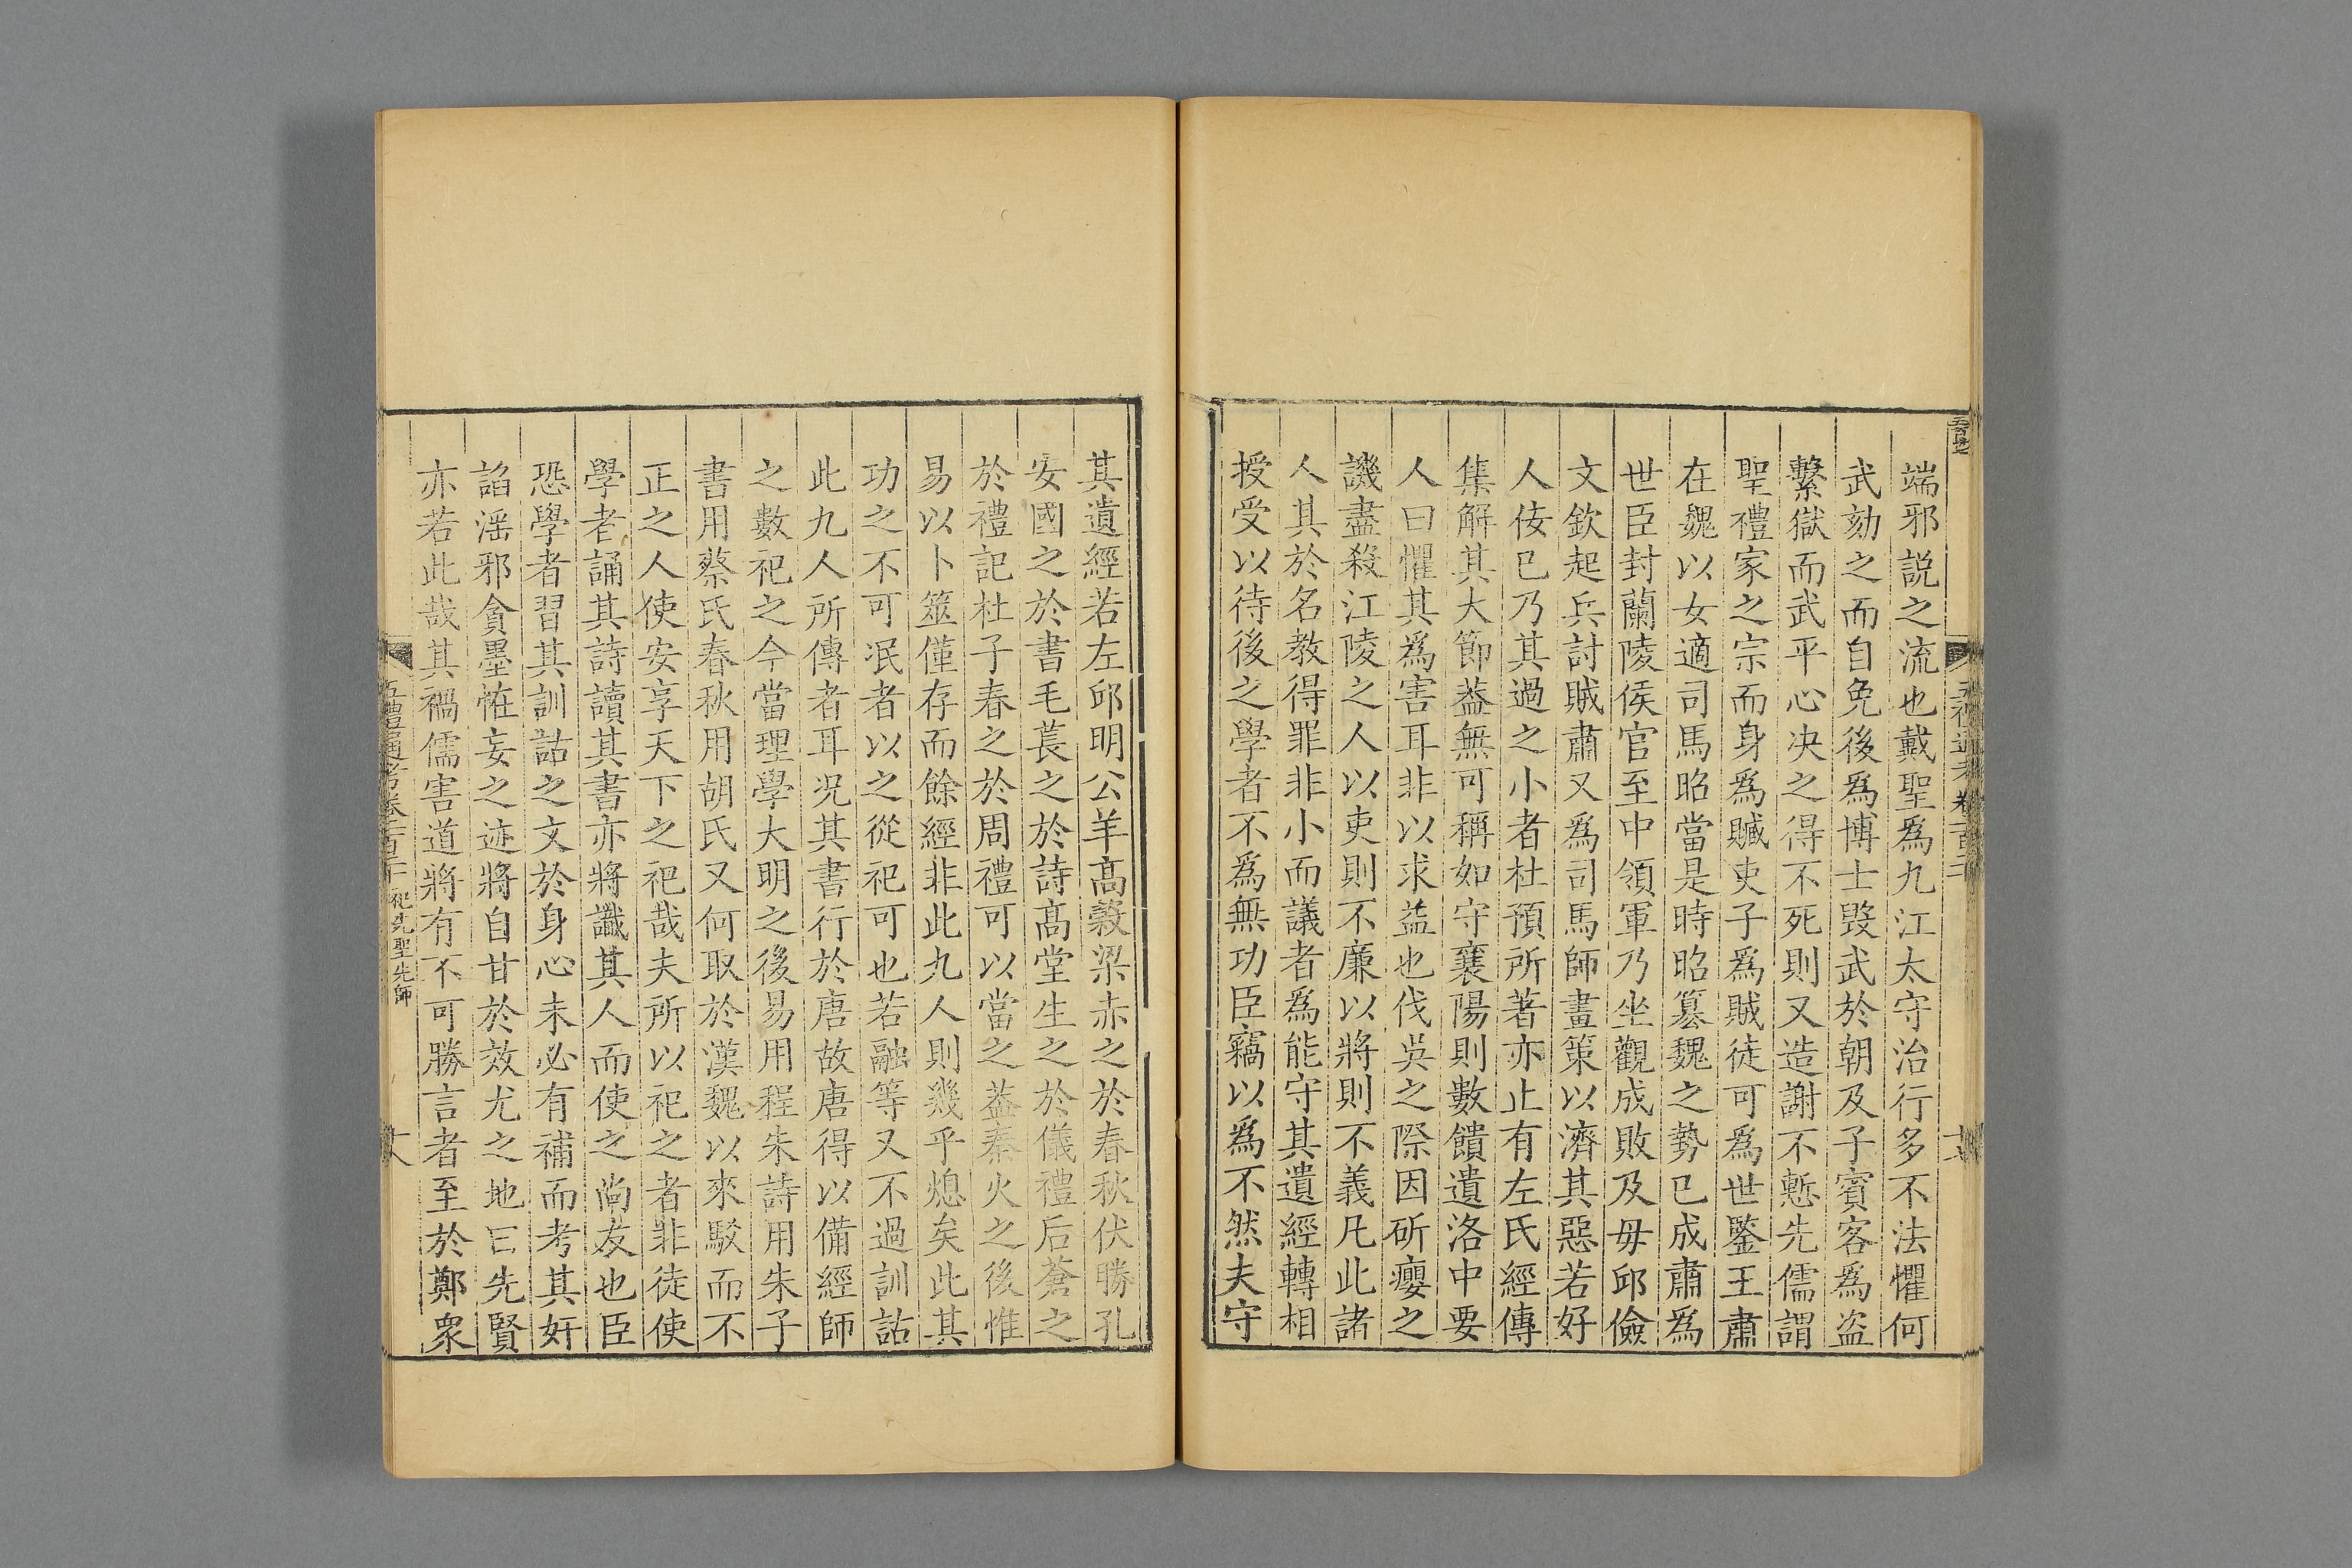 端邪説之流也戴聖爲九江太守治行多不法懼何
武劾之而自免後爲博士毀武於朝及子賓客爲盗
繫獄而武平心决之得不死則又造謝不慙先儒謂
聖禮家之宗而身爲贓吏子爲賊徒可爲世鑒王肅
在魏以女適司馬昭當是時昭簒魏之勢已成肅爲
世臣封蘭陵侯官至中領軍乃坐觀成敗及毋邱儉
文欽起兵討賊肅又爲司馬師畫策以濟其惡若好
人佞已乃其過之小者杜預所著亦止有左氏經傳
集解其大節葢無可稱如守襄陽則數饋遺洛中要
人曰懼其爲害耳非以求益也伐吳之際因斫癭之
譏盡殺江陵之人以吏則不廉以將則不義凡此諸
人其於名教得罪非小而議者爲能守其遺經轉相
授受以待後之學者不爲無功臣竊以爲不然夫守
其遺經若左邱明公羊高榖梁赤之於春秋伏勝孔
安國之於書毛萇之於詩高堂生之於儀禮后蒼之
於禮記杜子春之於周禮可以當之葢秦火之後惟
易以卜筮僅存而餘經非此九人則幾乎熄矣此其
功之不可泯者以之從祀可也若融等又不過訓詁
此九人所傳者耳况其書行於唐故唐得以備經師
之數祀之今當理學大明之後易用程朱詩用朱子
書用蔡氏春秋用胡氏又何取於漢魏以來駁而不
正之人使安享天下之祀哉夫所以祀之者非徒使
學者誦其詩讀其書亦將識其人而使之尚友也臣
恐學者習其訓詁之文於身心未必有補而考其奸
諂淫邪貪墨恠妄之迹將自甘於效尤之地曰先賢
亦若此哉其禍儒害道將有不可勝言者至於鄭衆
五禮通考卷一百十 祀先聖先師